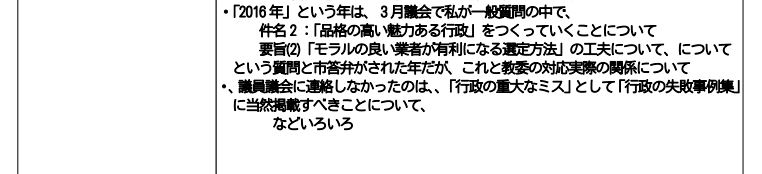 ・「2016年」という年は、3月議会で私が一般質問の中で、
件名2：「品格の高い魅力ある行政」をつくっていくことについて
要旨(2)「モラルの良い業者が有利になる選定方法」の工夫について、について
という質問と市答弁がされた年だが、これと教委の対応実際の関係について
・、議員議会に連絡しなかったのは、、「行政の重大なミス」として「行政の失敗事例集」
に当然掲載すべきことについて、
などいろいろ